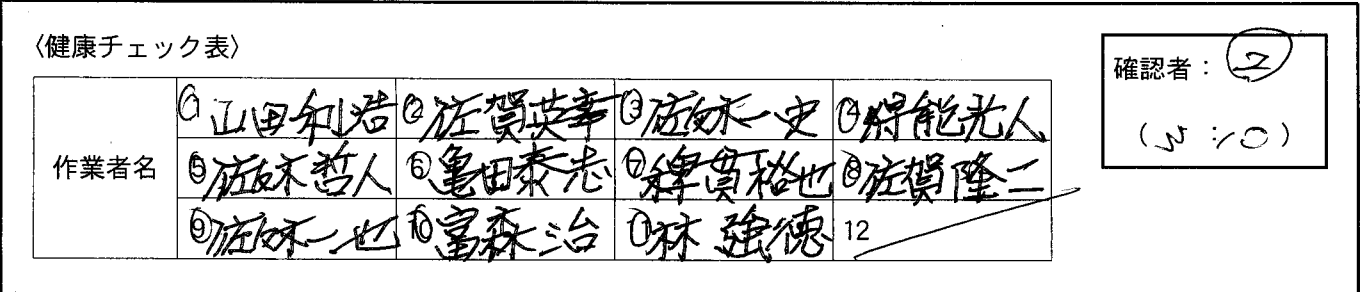 〈健康チェック表〉
確認者：②
作業者名
①山田利浩 ②佐賀英幸 ③佐々木一史 ④得能光人
⑤佐々木哲人 ⑥亀田泰志 ⑦綿貫裕也 ⑧佐賀隆二
⑨佐々木一也 ⑩富森治 ⑪林強徳 12